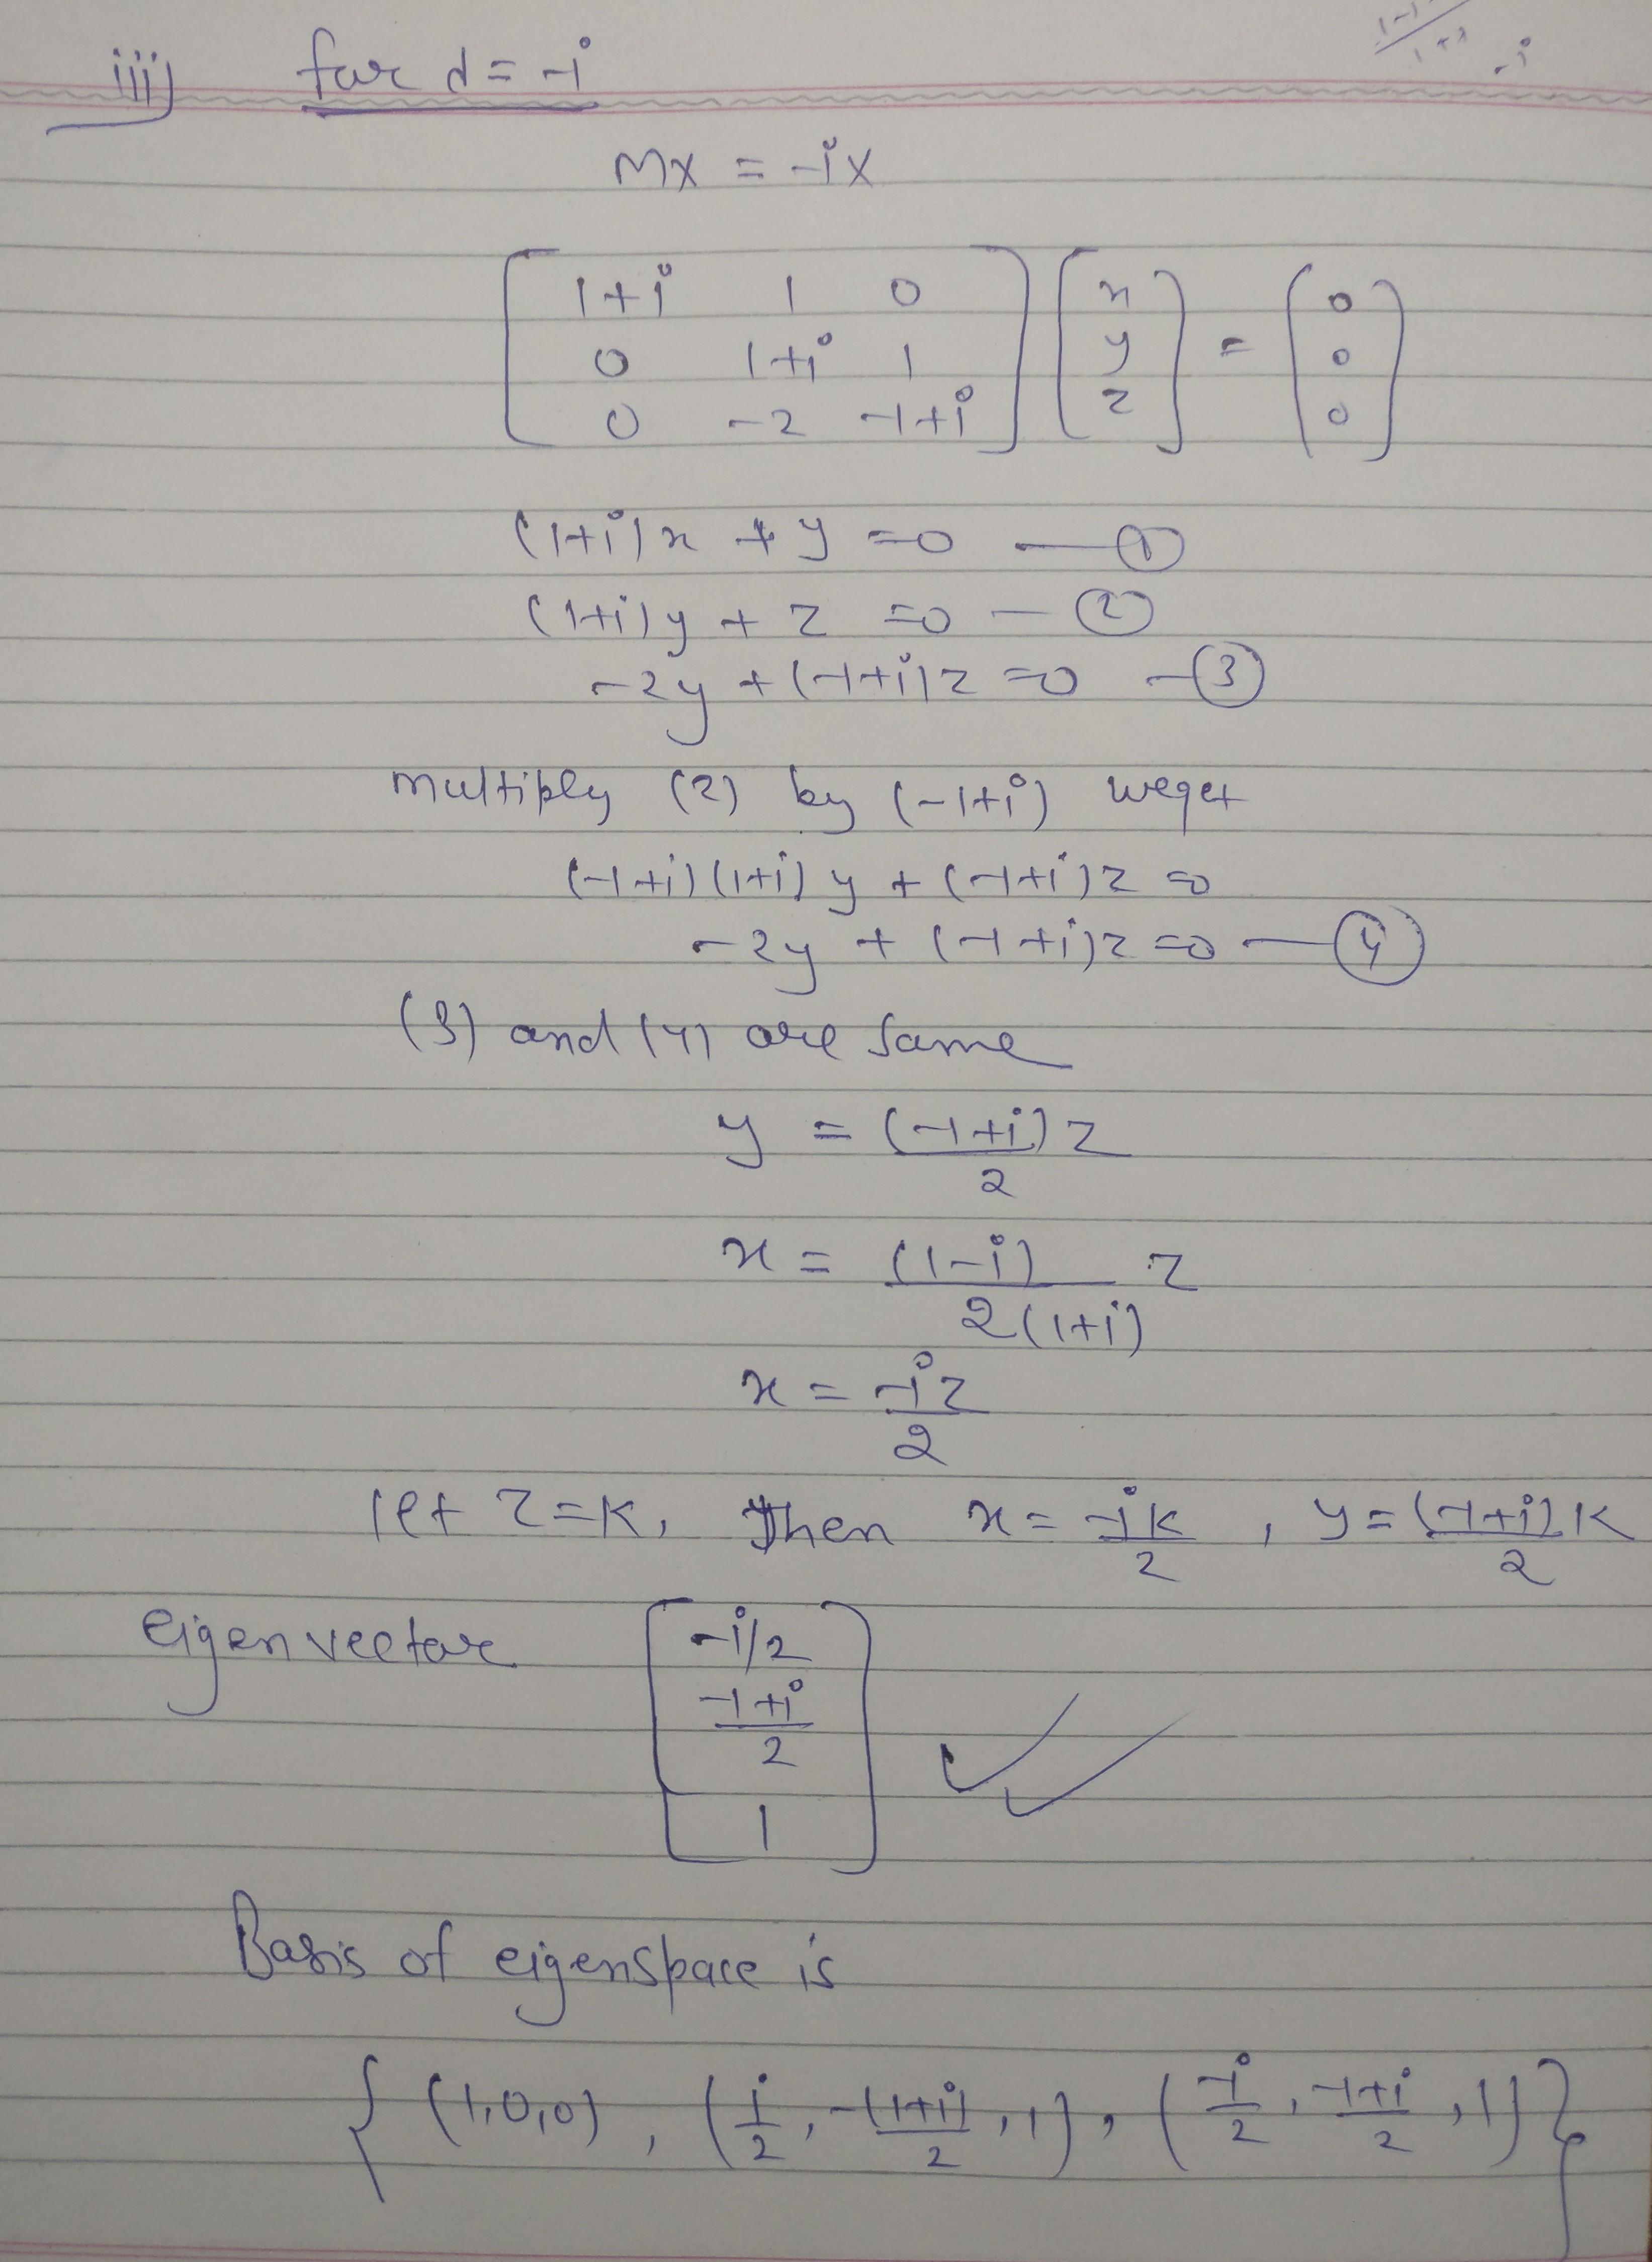 iii) for d = -i
Mx = -ix
[1+i 1 0] [x] = (0)
[0 1+i 1] [y] (0)
[0 -2 -1+i] [z] (0)
(1+i)x + y = 0 — ①
(1+i)y + z = 0 — ②
-2y + (-1+i)z = 0 — ③
multiply (2) by (-1+i) we get
(-1+i)(1+i)y + (-1+i)z = 0
-2y + (-1+i)z = 0 — ④
(3) and (4) are same
y = (-1+i)z / 2
x = (1-i) / 2(1+i) z
x = -iz / 2
let z = k, Then x = -ik/2 , y = (-1+i)k / 2
eigenvector [-i/2]
[-1+i / 2]
[1]
Basis of eigenspace is
{ (1,0,0) , (i/2 , -(1+i)/2 , 1) , (-i/2 , -1+i/2 , 1) }